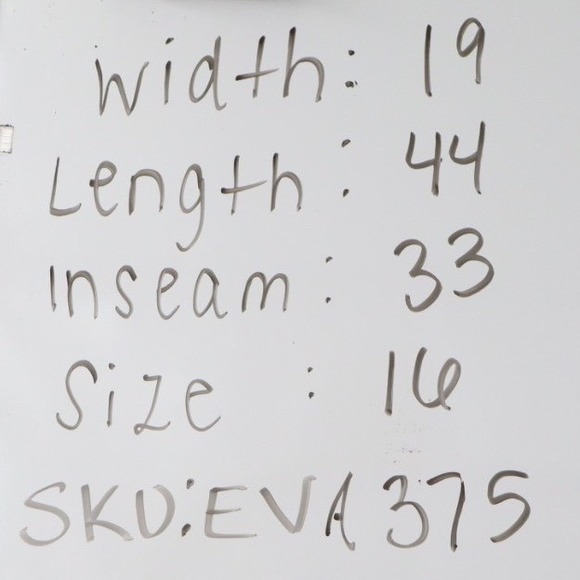 Width: 19
Length: 44
Inseam: 33
Size : 16
SKU:EVA375